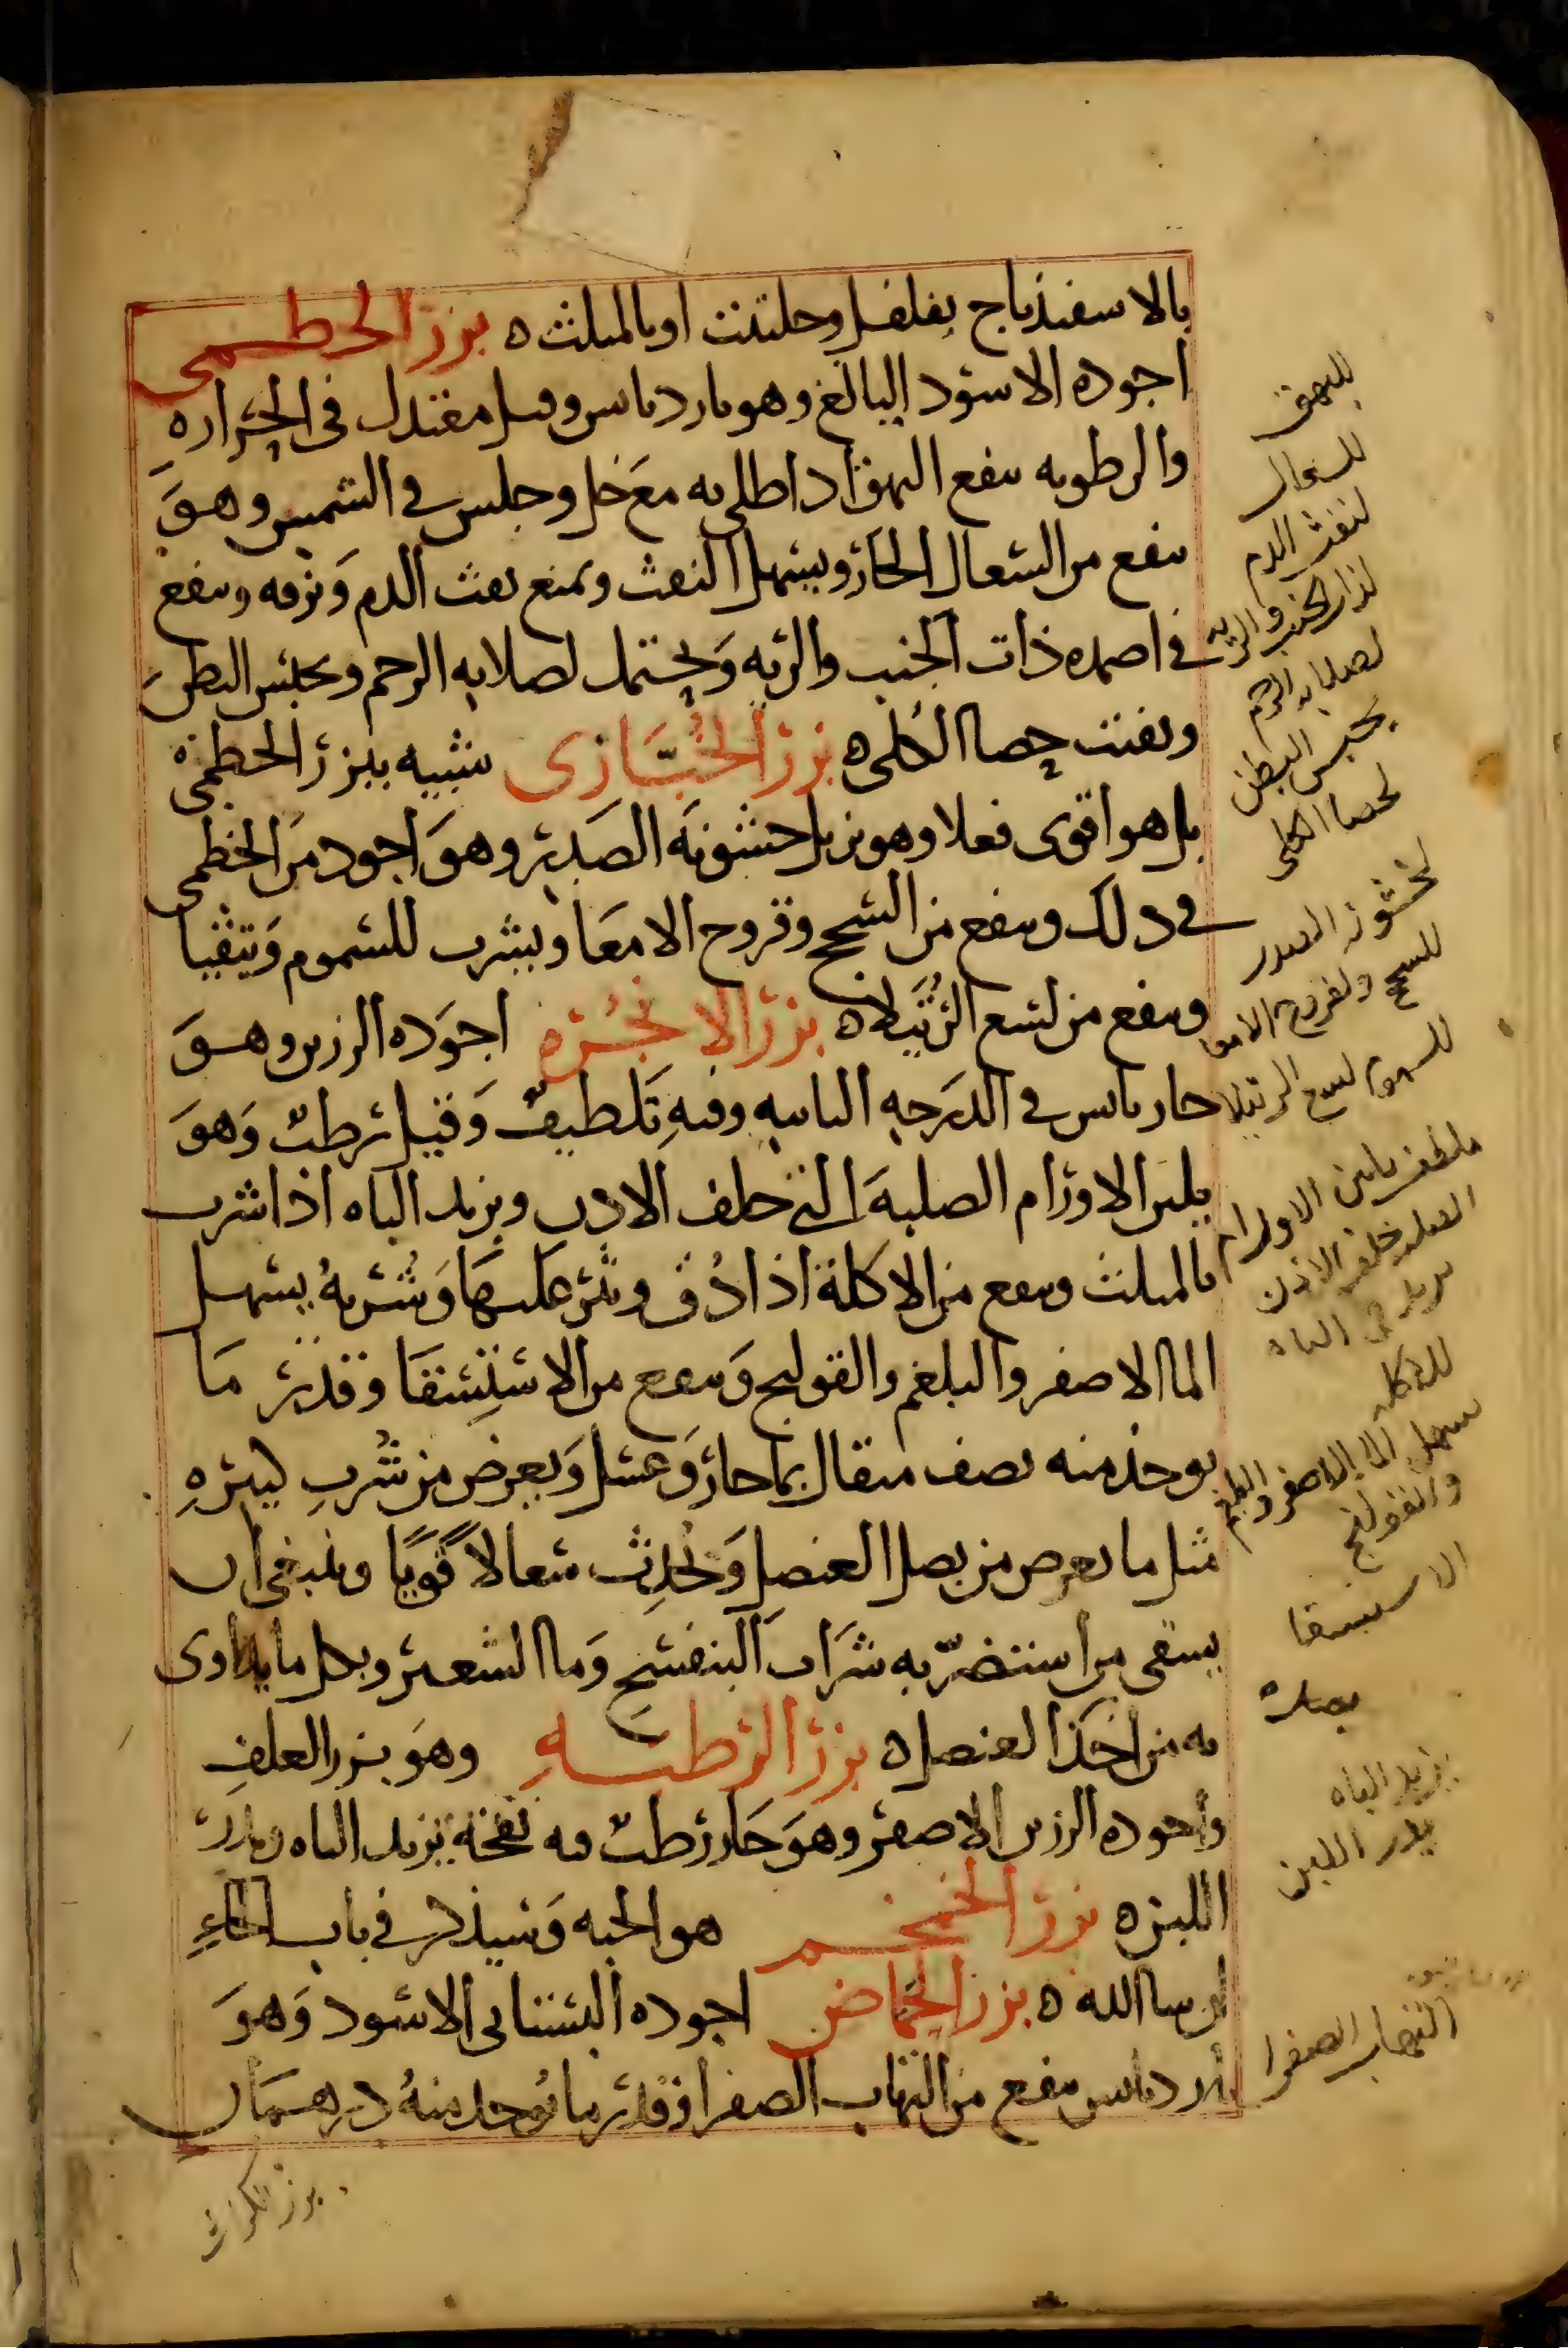 بالاسفيذباج بفلفل وحلتيت او بالمثلث ه بزر الخطمى
اجوده الاسود البالغ وهو بارد يابس وقيل معتدل فى الحراره
والرطوبه ينفع البهق اذا طلى به مع خل وجلس في الشمس وهو
ينفع من السعال الحار ويسهل النفث ويمنع نفث الدم ونزفه وينفع
في اضمده ذات الجنب والريه ويحتمل لصلابه الرحم ويحبس البطن
ويفتت حصا الكلى ه بزر الخبازى شبيه ببزر الخطمى
بل هو اقوى فعلا وهو يزيل خشونه الصدر وهو اجود من الخطمى
في ذلك وينفع من السحج وقروح الامعا ويشرب للسموم ويتقيا
وينفع من لسع الرتيلا ه بزر الانجره اجوده الرزين وهو
حار يابس في الدرجه الثانيه وفيه تلطيف وقيل رطب وهو
يلين الاورام الصلبه التي خلف الاذن ويزيد الباه اذا شرب
بالمثلث وينفع من الاكلة اذا دُق ونثر عليها وشربه يسهل
الما الاصفر والبلغم والقولنج وينفع من الاستسقا وقدر ما
يوخذ منه نصف مثقال بما حار وعسل ويعرض من شرب كثيره
مثل ما يعرض من بصل العنصل ويحدث سعالا قويا وينبغى ان
يسقى من استضرّ به شراب البنفسج وما الشعير وبكل ما يداوى
به من اخذ العنصل ه بزر الرطبه وهو بزر العلف
واجوده الرزين الاصفر وهو حار رطب فيه نفخه يزيد الباه ويدر
اللبن ه بزر الخمخم هو الحبه وسيذكر في باب الحاء
ان شا الله ه بزر الحماض اجوده البستانى الاسود وهو
بارد يابس ينفع من التهاب الصفرا وقدر ما يوخذ منه درهمان
للبهق
للسعال
لنفث الدم
لذات الجنب والريه
لصلابه الرحم
يحبس البطن
لحصا الكلى
لخشونه الصدر
للسحج ولقروح الامعا
للسموم لسع الرتيلا
ملطف يلين الاورام
الصلبه خلف الاذن
يزيد في الباه
للاكله
يسهل الما الاصفر والبلغم
والقولنج
الاستسقا
يزيد الباه
يدر اللبن
التهاب الصفرا
بزر الكراث